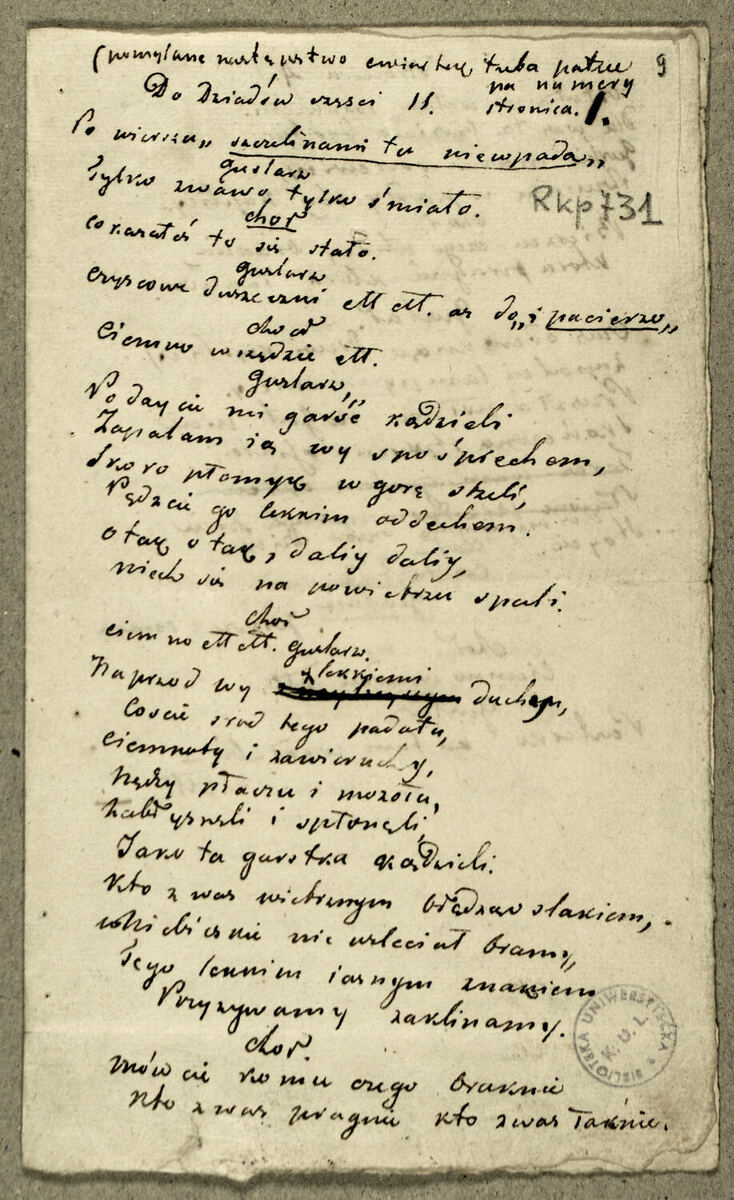 (pomylane następstwo ćwiartek, trzba patrze 9
na numery
Do Dziadów części II. stronica. 1.
Po wierszu „szczelinami tu niewpada„
guslarz
Tylko żwawo tylko śmiało.
chor
cokazałeś to się stało.
guslarz
czyscowe duszeczki ett ett. az do „i pacierze„
chor
Ciemno wszędzie ett.
Guslarz„
Podaycie mi garść kądzieli
Zapalam ią wy spośpiechem,
Skoro płomyk w gorę strzeli,
Pędzcie go lekkim oddechem.
otak otak, daliy daliy,
niech się na powietrzu spali.
chor
ciemno ett ett. guslarz.
Naprzod wy z lekkiemi duchy,
Coscie srod tego padołu,
ciemnoty i zawieruchy,
Nędzy płaczu i mozołu,
Zabłysneli i spłoneli,
Jako ta garstka kądzieli.
Kto z was wietrznym błędząc slakiem,
w niebieskie nie wzleciał bramy,
Tego lekkim iasnym znakiem
Przyzywamy zaklinamy.
chor.
mówcie komu czego braknie
Kto z was pragnie kto z was łaknie.
Rkp 731
BIBLIOTEKA UNIWERSYTECKA
K.U.L.